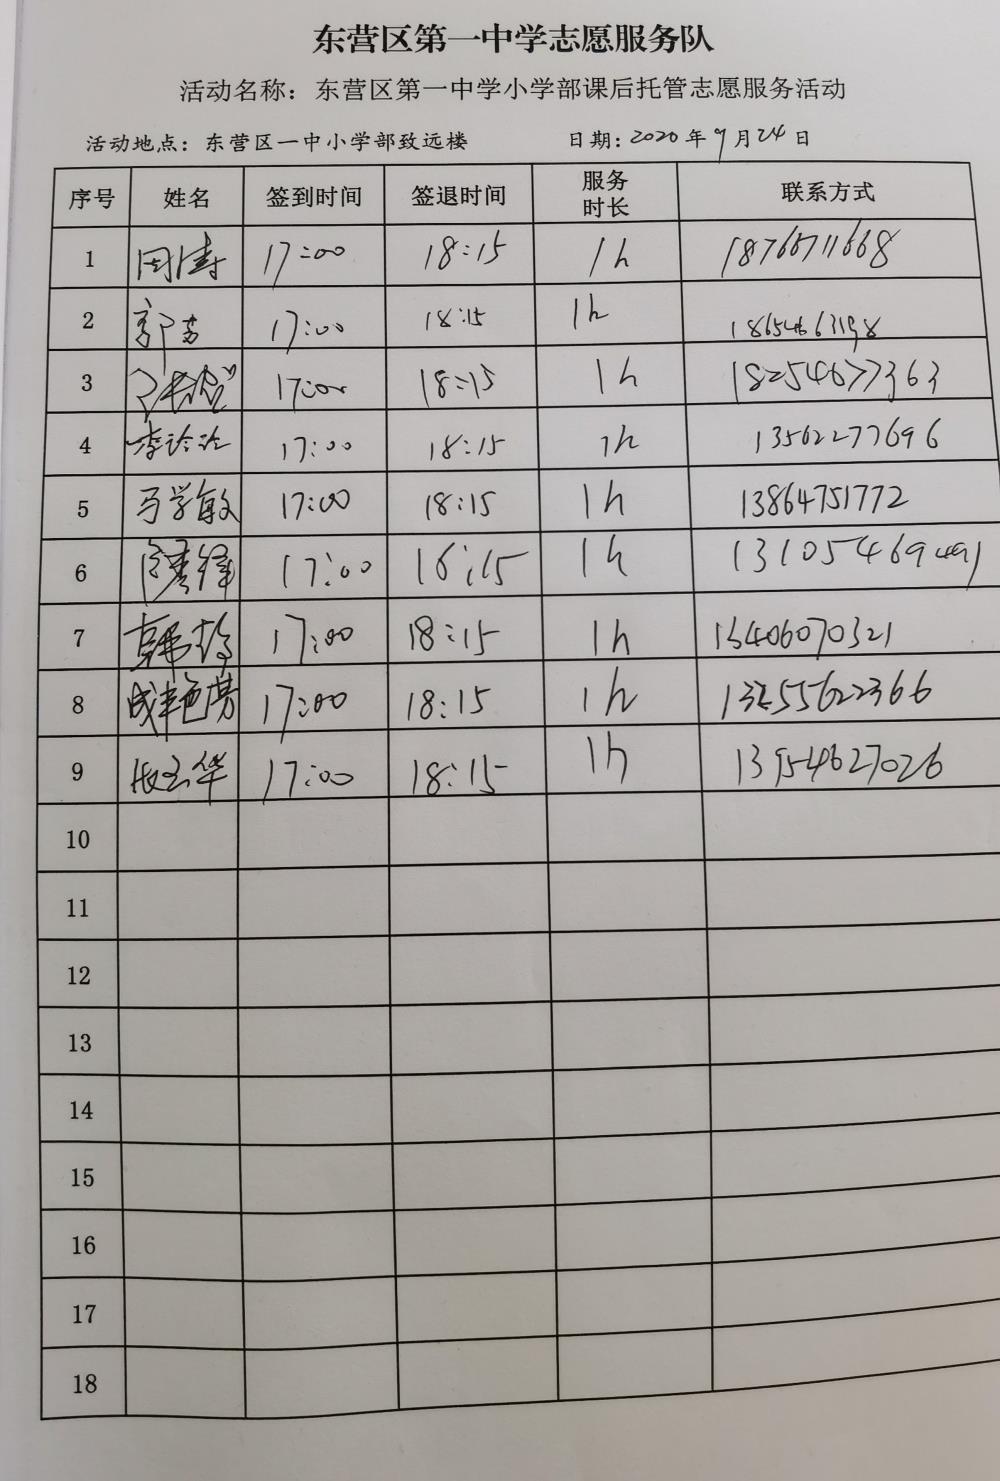 东营区第一中学志愿服务队
活动名称：东营区第一中学小学部课后托管志愿服务活动
活动地点：东营区一中小学部致远楼 日期：2020年9月24日
序号 姓名 签到时间 签退时间 服务时长 联系方式
1 周涛 17:00 18:15 1h 18766711668
2 郭芳 17:00 18:15 1h 18654663198
3 17:00 18:15 1h 18254677363
4 李论论 17:00 18:15 1h 13562277696
5 马学敏 17:00 18:15 1h 13864751772
6 17:00 16:15 1h
7 韩婷 17:00 18:15 1h 13406070321
8 成艳芳 17:00 18:15 1h
9 17:00 18:15 1h 13954627026
10
11
12
13
14
15
16
17
18